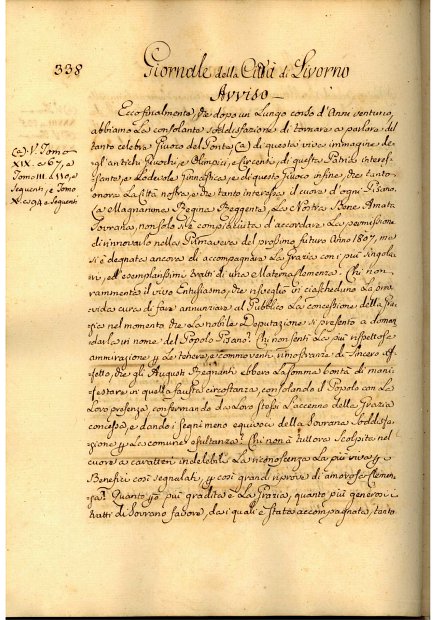 338
Giornale della Città di Livorno
Avviso
(a) V. Tomo
XIX. c 67, e
Tomo III. d 110, e
Seguenti, e Tomo
X. c 94 e Seguenti
Ecco finalmente, che dopo un Lungo corso d'Anni ventuno,
abbiamo La consolante soddisfazione di tornare a parlare del
tanto celebre Giuoco del Ponte (a) di questa viva immagine de-
gl'antichi Giuochi, e Olimpici, e Circensi, di questa Patria interes-
sante, e Lodevole Ginnastica, e di questo Giuoco infine, che tanto
onora La Città nostra, e che tanto interessa il cuore d'ogni Pisano.
La Magnanima Regina Reggente, La Nostra Bene Amata
Sovrana, non solo si è compiaciuta d'accordare La permissione
di rinnovarlo nella Primavera del prossimo futuro Anno 1807, ma
si è degnata ancora di accompagnare La Grazia con i più singola-
ri, ed esemplarissimi tratti di una Materna clemenza. Chi non
rammenta il vivo Entusiasmo, che risvegliò in ciascheduno La pre-
vida cura di fare annunziare al Pubblico La concessione della Gra-
zia nel momento che La nobile Deputazione si presentò a doman-
darla in nome del Popolo Pisano? Chi non sentì La più rispettosa
ammirazione p. Le tenere, e commoventi rimostranze di sincero af-
fetto, che gli Augusti Regnanti ebbero La somma bontà di mani-
festare in quella fausta circostanza, consolando il Popolo con La
Loro presenza, confermando da Loro stessi L'accenno della Grazia
concessa, e dando i segni meno equivoci della Sovrana Soddisfa-
zione p. La comune esultanza? Chi non à tuttora Scolpita nel
cuore a caratteri indelebili La riconoscenza La più viva p.
Benefici così segnalati, e p. così grandi riprove di amorosa Clemen-
za? Quanto però più gradita è La Grazia, quanto più generosi i
tratti di Sovrano favore, da i quali è stata accompagnata, tanto